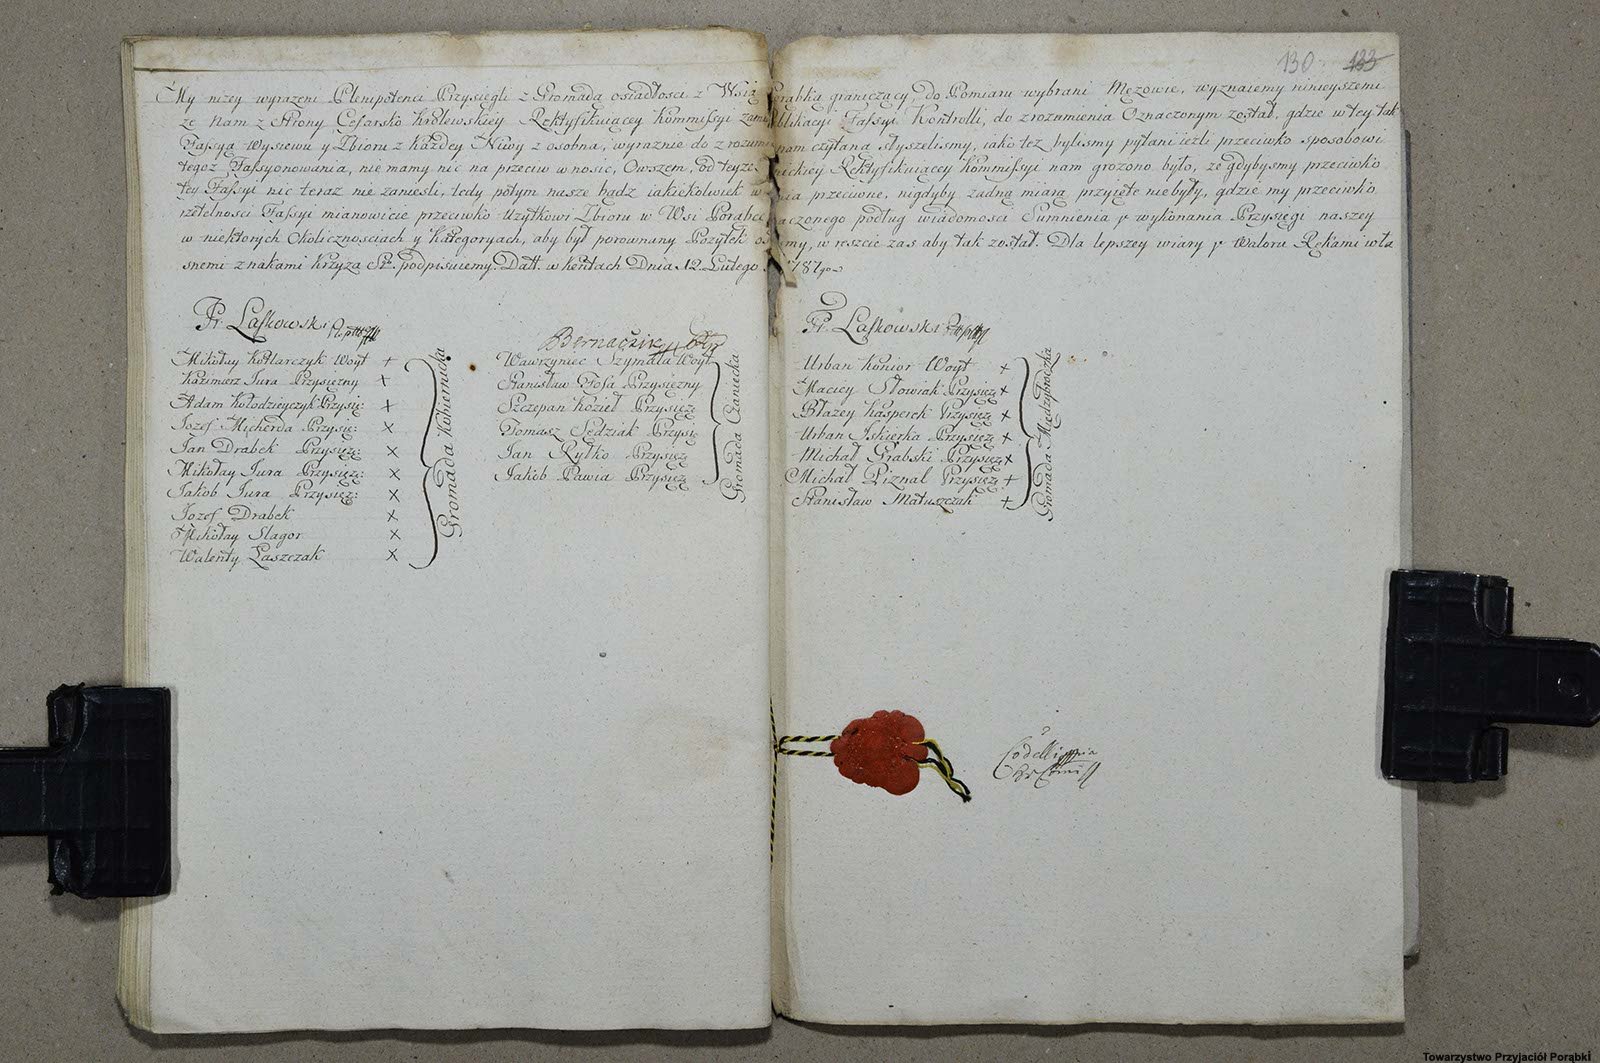 130 133
My nizey wyrazeni Plenipotenci Przysięgli z Gromada osiadłosci z Wsią Porąbką graniczący, do Pomiaru wybrani Męzowie, wyznaiemy ninieyszemi
że Nam z Strony Cesarsko Krolewskiey Rektyfikuiącey Kommissyi Fassyi Kontrolli, do zrozumienia Oznaczonym został, gdzie w tey tak
Fassya Wysiewu y Zbioru z Kazdey Niwy z osobna, wyraznie do nam czytana słyszelismy, iako tez bylismy pytani iezli przeciwko sposobowi
tegoż Fassyonowania, nie mamy nic na przeciw wnosic, Owszem, od teyze Rektyfikuiącey Kommissyi nam grozono było, ze gdybysmy przeciwko
tey Fassyi nic teraz nie zaniesli, tedy potym nasze bądz iakiekolwiek przeciwne, nigdyby zadną miarą przyięte niebyły, gdzie my przeciwko
rzetelnosci Fassyi mianowicie przeciwko Uzytkowi Zbioru w Wsi Porąbce podług wiadomosci Sumnienia y wykonania Przysięgi naszey
w niektorych Okolicznosciach y Kategoryach, aby był porownany Pozytek w reszcie zas aby tak został. Dla lepszey wiary y Waloru Rękami wła
snemi znakami Krzyza S: podpisuiemy. Datt. w Kentach Dnia 12. Lutego 1787
Fr. Laskowski
Mikołay Kotlarczyk Woyt +
Kazimierz Jura Przysięzny +
Adam Kołodzieyczyk Przysię: +
Jozef Micherda Przysię: x
Jan Drabek Przysięz: x
Mikołay Jura Przysięz: x
Jakob Jura Przysięz: x
Jozef Drabek x
Mikołay Slagor x
Walenty Laszczak x
Gromada Kobiernicka
Bernaczik
Wawrzyniec Szymala Woyt
Stanisław Fosa Przysięzny
Szczepan Kozieł Przysięz
Tomasz Sędziak Przysię
Jan Rytko Przysięz
Jakob Pawia Przysięz
Gromada Czaniecka
Fr. Laskowski
Urban Konior Woyt x
Maciey Słowiak Przysięz x
Błazey Kasperek Przysięz x
Urban Iskierka Przysięz x
Michał Grabski Przysięz x
Michał Piznal Przysięz +
Stanisław Matuszczak +
Gromada Międzybrodzka
Codelli
Towarzystwo Przyjaciół Porąbki